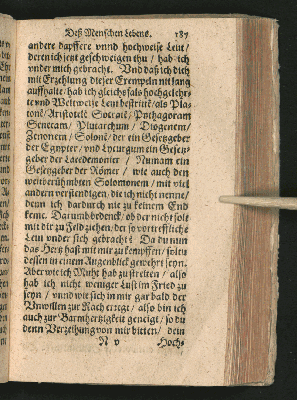 Deß Menschen Lebens. 187
andere dapffere vnnd hochweise Leut /
deren ich jetzt geschweigen thu / hab ich
vnder mich gebracht. Vnd daß ich dich
mit Erzehlung dieser Exempeln nit lang
auffhalte / hab ich gleichsfals hochgelehr-
te vnd Weltweise Leut bestritten / als Pla-
tonē / Aristotelē Socratē / Pythagoram
Senecam / Plutarchum / Diogenem /
Zenonem / Solonē / der ein Gesetzgeber
der Egypter / vnd Lycurgum ein Gesetz-
geber der Lacedemonier / Numam ein
Gesetzgeber der Römer / wie auch den
weitberühmbten Solomonem / mit viel
andern verstendigen / die ich nicht nenne /
denn ich dardurch nie zu keinem End
keme. Darumb bedenck / ob der nicht solt
mit dir zu Feld ziehen / der so vortreffliche
Leut vnder sich gebracht? Da du nun
das Hertz hast mit mir zu kempffen / soltu
dessen in einem Augenblick gewehrt seyn.
Aber wie ich Muht hab zu streiten / also
hab ich nicht weniger Lust im Fried zu
seyn / vnnd wie sich in mir gar bald der
Vnwillen zur Rach erregt / also bin ich
auch zur Barmhertzigkeit geneigt / so du
denn Verzeihung von mir bitten / dein
N v Hoch-